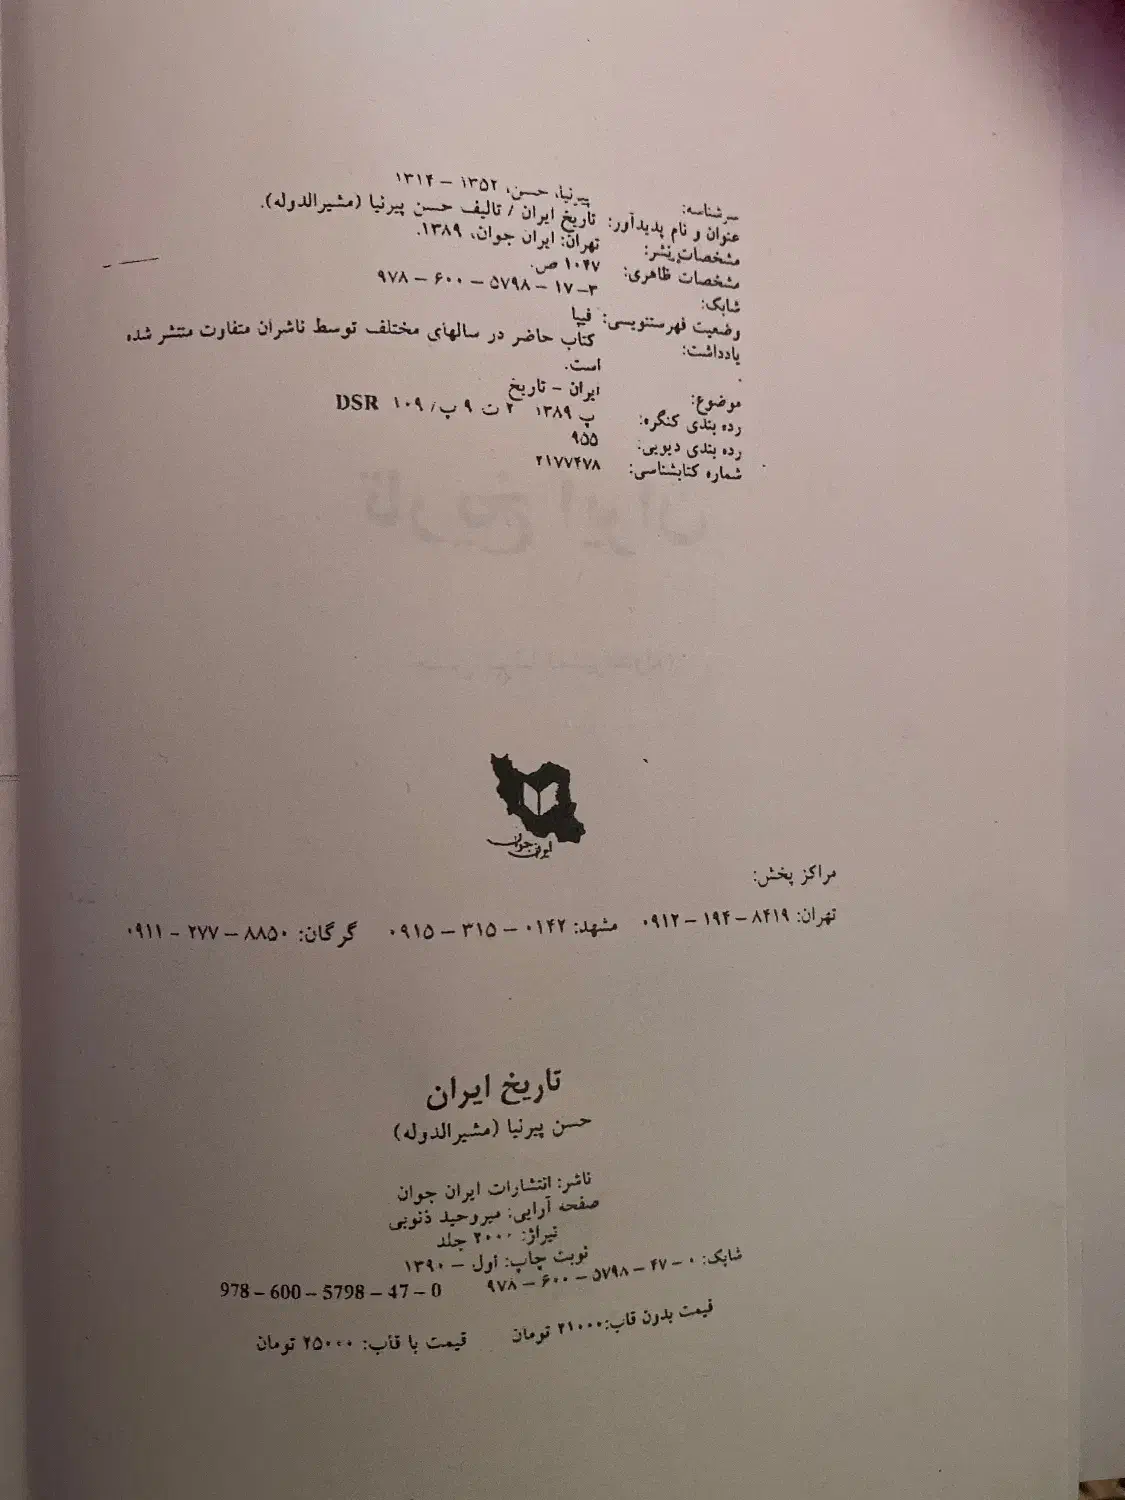 سرشناسه: پیرنیا، حسن، ۱۳۵۲ – ۱۳۱۴
عنوان و نام پدیدآور: تاریخ ایران / تالیف حسن پیرنیا (مشیرالدوله).
مشخصات نشر: تهران: ایران جوان، ۱۳۸۹.
مشخصات ظاهری: ۱۰۴۷ ص.
شابک: ۹۷۸ – ۶۰۰ – ۵۷۹۸ – ۱۷ – ۳
وضعیت فهرستنویسی: فیپا
یادداشت: کتاب حاضر در سالهای مختلف توسط ناشران متفاوت منتشر شده
است.
موضوع: ایران – تاریخ
رده بندی کنگره: پ ۱۳۸۹ ۲ ت ۹ پ/ ۱۰۹ DSR
رده بندی دیویی: ۹۵۵
شماره کتابشناسی: ۲۱۷۷۴۷۸
ایران جوان
مراکز پخش:
تهران: ۸۴۱۹ – ۱۹۴ – ۰۹۱۲ مشهد: ۰۱۴۲ – ۳۱۵ – ۰۹۱۵ گرگان: ۸۸۵۰ – ۲۷۷ – ۰۹۱۱
تاریخ ایران
حسن پیرنیا (مشیرالدوله)
ناشر: انتشارات ایران جوان
صفحه آرایی: میروحید ذنوبی
تیراژ: ۲۰۰۰ جلد
نوبت چاپ: اول – ۱۳۹۰
شابک: ۰ – ۴۷ – ۵۷۹۸ – ۶۰۰ – ۹۷۸ 978 – 600 – 5798 – 47 – 0
قیمت بدون قاب: ۲۱۰۰۰ تومان قیمت با قاب: ۲۵۰۰۰ تومان